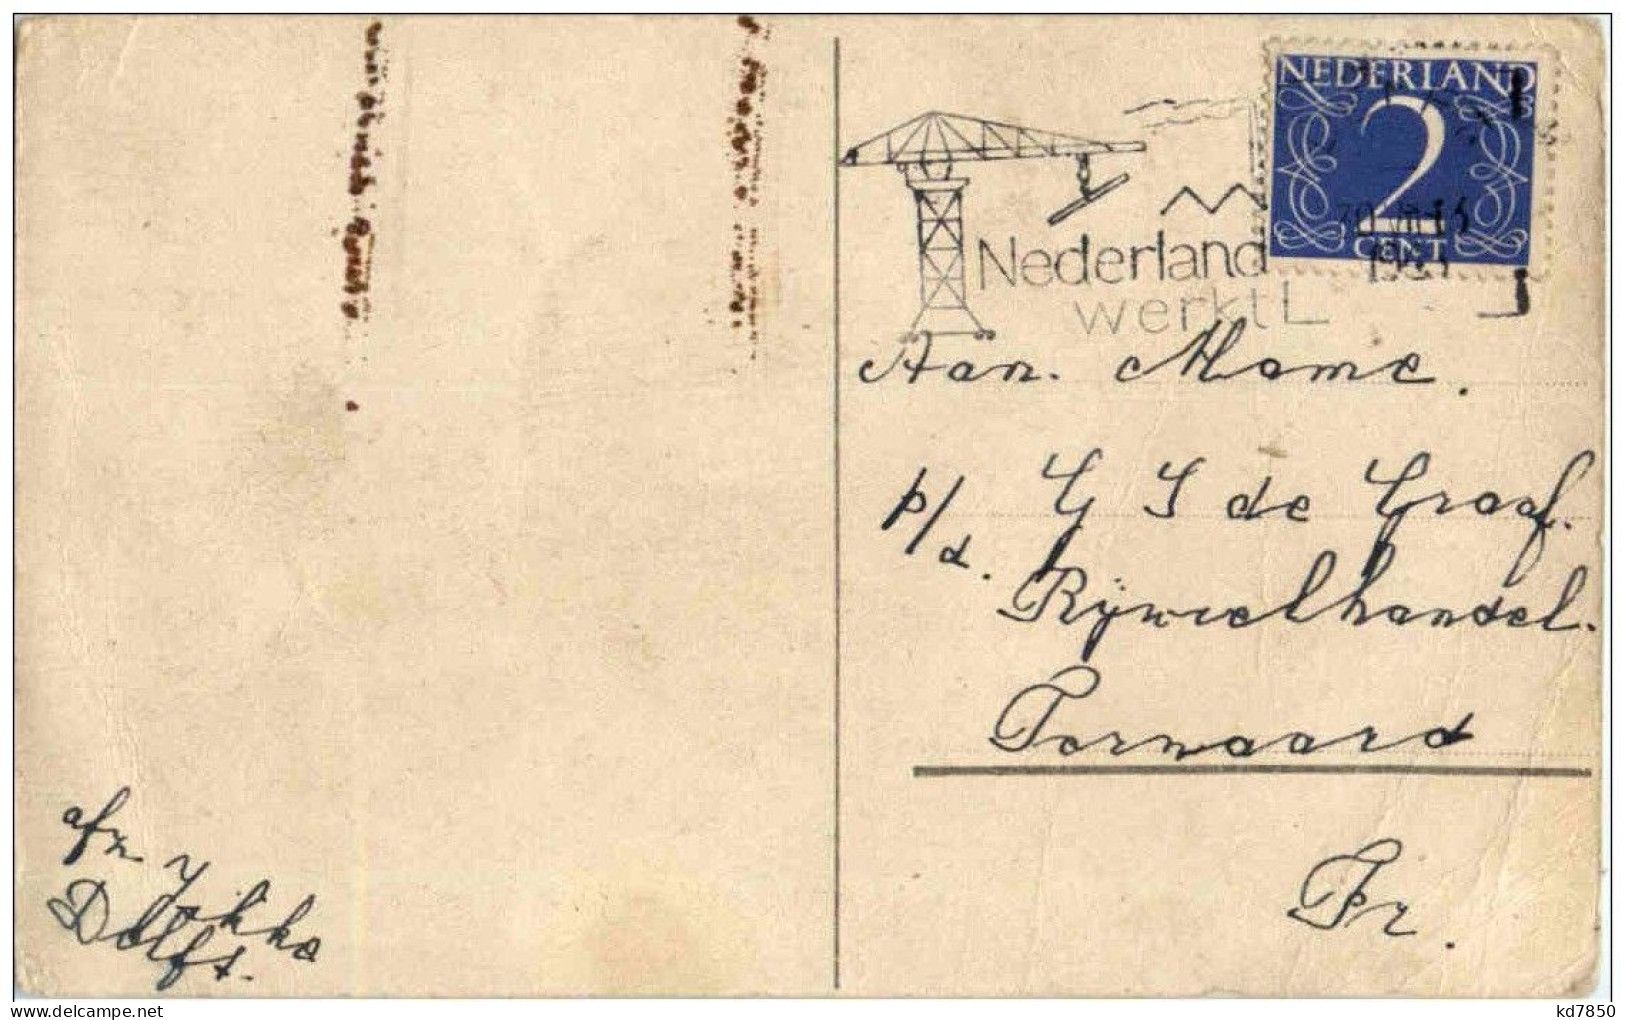 NEDERLAND
2
CENT
Nederland
werkt
Aan. Meme.
p/d. G S de Graaf.
Rijwielhandel.
Ternaard
Fr.
afz. Jokke
Delfst.
delcampe.net
kd7850